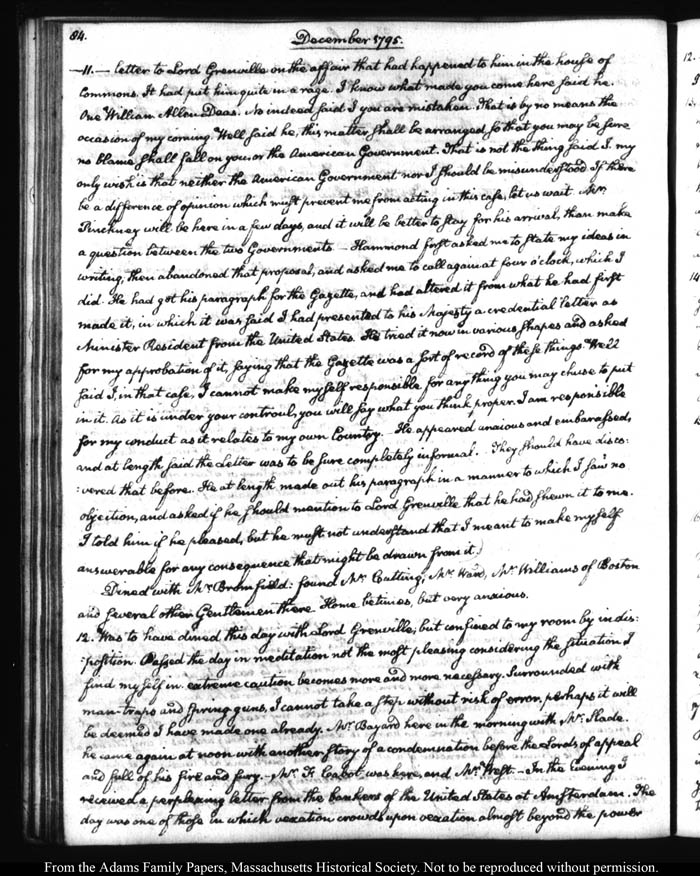 84.
December 1795.
—11.— letter to Lord Grenville on the affair that had happened to him in the house of
Commons. It had put him quite in a rage. I know what made you come here said he.
One William Allen Deas. No indeed said I you are mistaken. That is by no means the
occasion of my coming. Well said he, this matter shall be arranged so that you may be sure
no blame shall fall on you or the American Government. That is not the thing said I. my
only wish is that neither the American Government nor I should be misunderstood If there
be a difference of opinion which must prevent me from acting in this case, let us wait Mr:
Pinckney will be here in a few days, and it will be better to stay for his arrival, than make
a question between the two Governments — Hammond first asked me to state my ideas in
writing, then abandoned that proposal, and asked me to call again at four o'clock, which I
did. He had got his paragraph for the Gazette, and had altered it from what he had first
made it, in which it was said I had presented to his Majesty a credential letter as
Minister Resident from the United States. He tried it now in various shapes and asked
for my approbation of it, saying that the Gazette was a sort of record of these things. Well
said I, in that case, I cannot make myself responsible for any thing you may chuse to put
in it. As it is under your controul, you will say what you think proper. I am responsible
for my conduct as it relates to my own Country. He appeared anxious and embarassed,
and at length said the Letter was to be sure completely informal. They should have disco:
:vered that before. He at length made out his paragraph in a manner to which I saw no
objection, and asked if he should mention to Lord Grenville that he had shewn it to me.
I told him if he pleased, but he must not understand that I meant to make myself
answerable for any consequence that might be drawn from it.)
Dined with Mr: Bromfield: found Mr: Cutting, Mr: Ward, Mr: Williams of Boston
and several other Gentlemen there Home betimes, but very anxious.
12. Was to have dined this day with Lord Grenville, but confined to my room by indis:
:position. Passed the day in meditation not the most pleasing considering the situation I
find myself in. extreme caution becomes more and more necessary. Surrounded with
man-traps and spring guns, I cannot take a step without risk of error, perhaps it will
be deemed I have made one already. Mr: Bayard here in the morning with Mr: Slade.
he came again at noon with another story of a condemnation before the Lords of appeal
and full of his fire and fury. Mr: F. Cabot was here, and Mr: West. — In the Evening I
received a perplexing letter from the bankers of the United States at Amsterdam. The
day was one of those in which vexation crowds upon vexation almost beyond the power
12.
13.
14
From the Adams Family Papers, Massachusetts Historical Society. Not to be reproduced without permission.